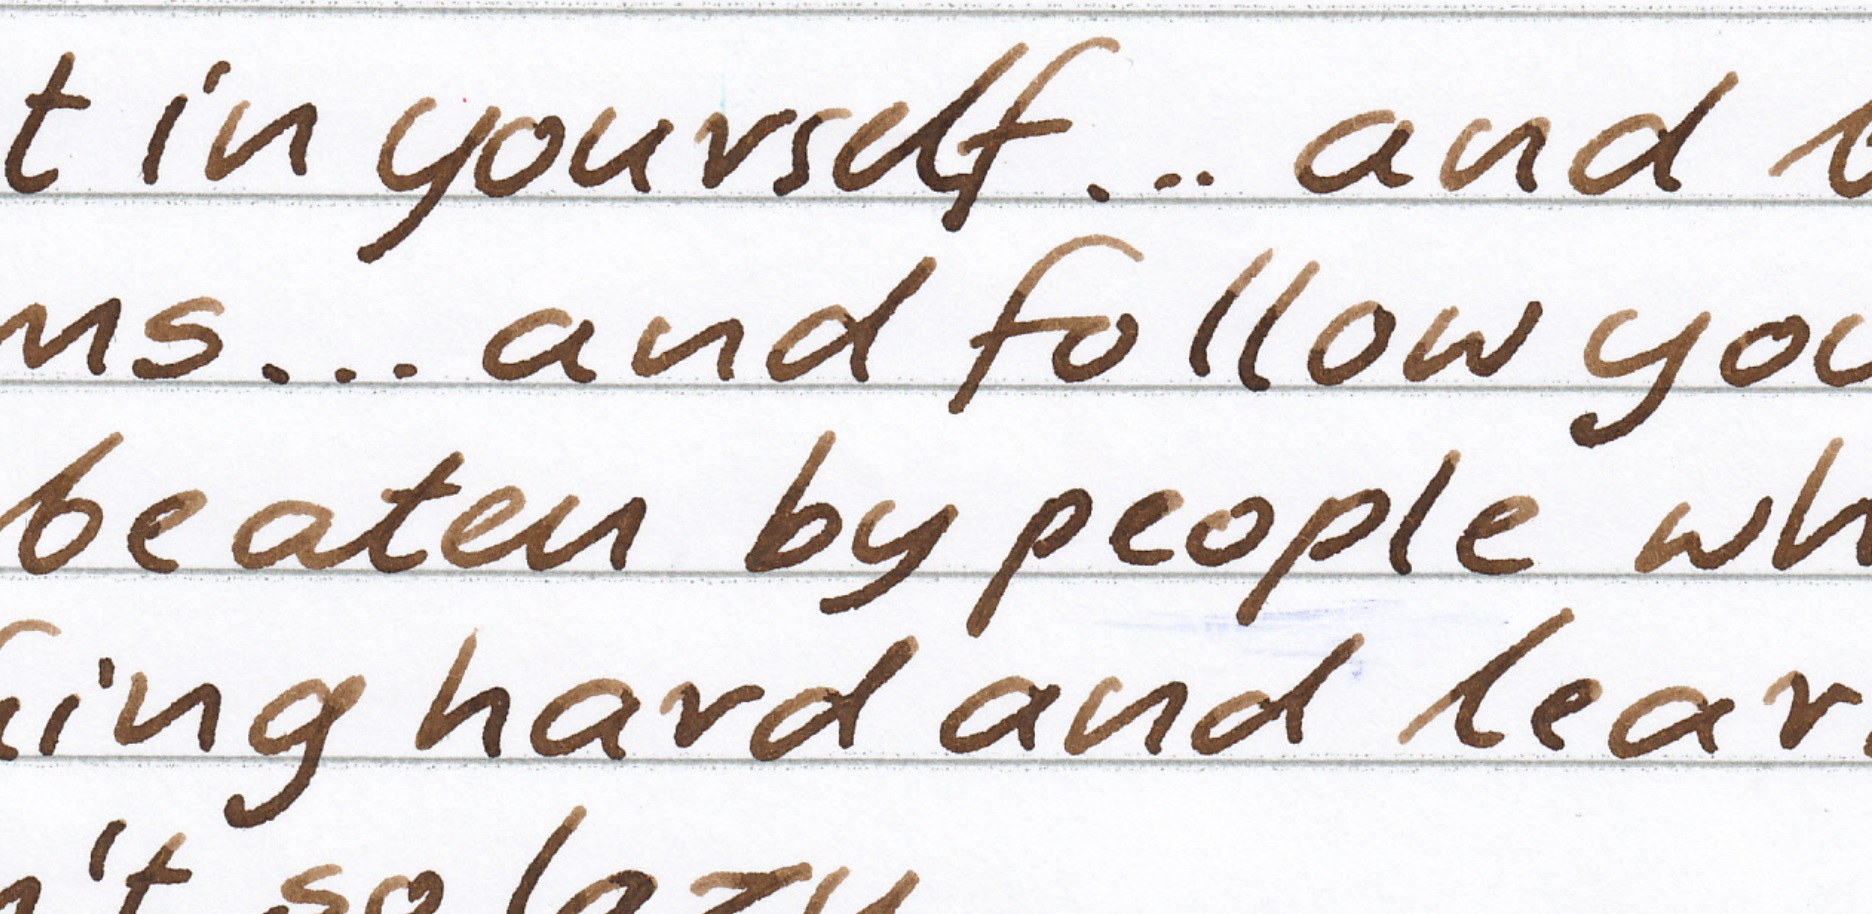 t in yourself... and b
ms... and follow you
beaten by people wh
hing hard and lear
n't so lazy